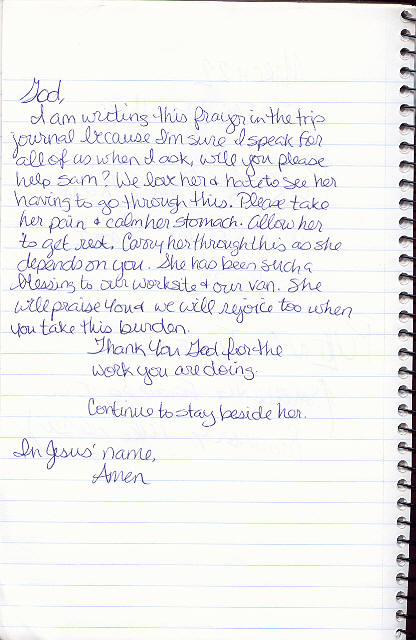 God,
I am writing this prayer in the trip
journal because I'm sure I speak for
all of us when I ask, will you please
help Sam? We love her & hate to see her
having to go through this. Please take
her pain & calm her stomach. Allow her
to get rest. Carry her through this as she
depends on you. She has been such a
blessing to our worksite & our van. She
will praise You & we will rejoice too when
you take this burden.
Thank You God for the
work you are doing.
Continue to stay beside her.
In Jesus' name,
Amen